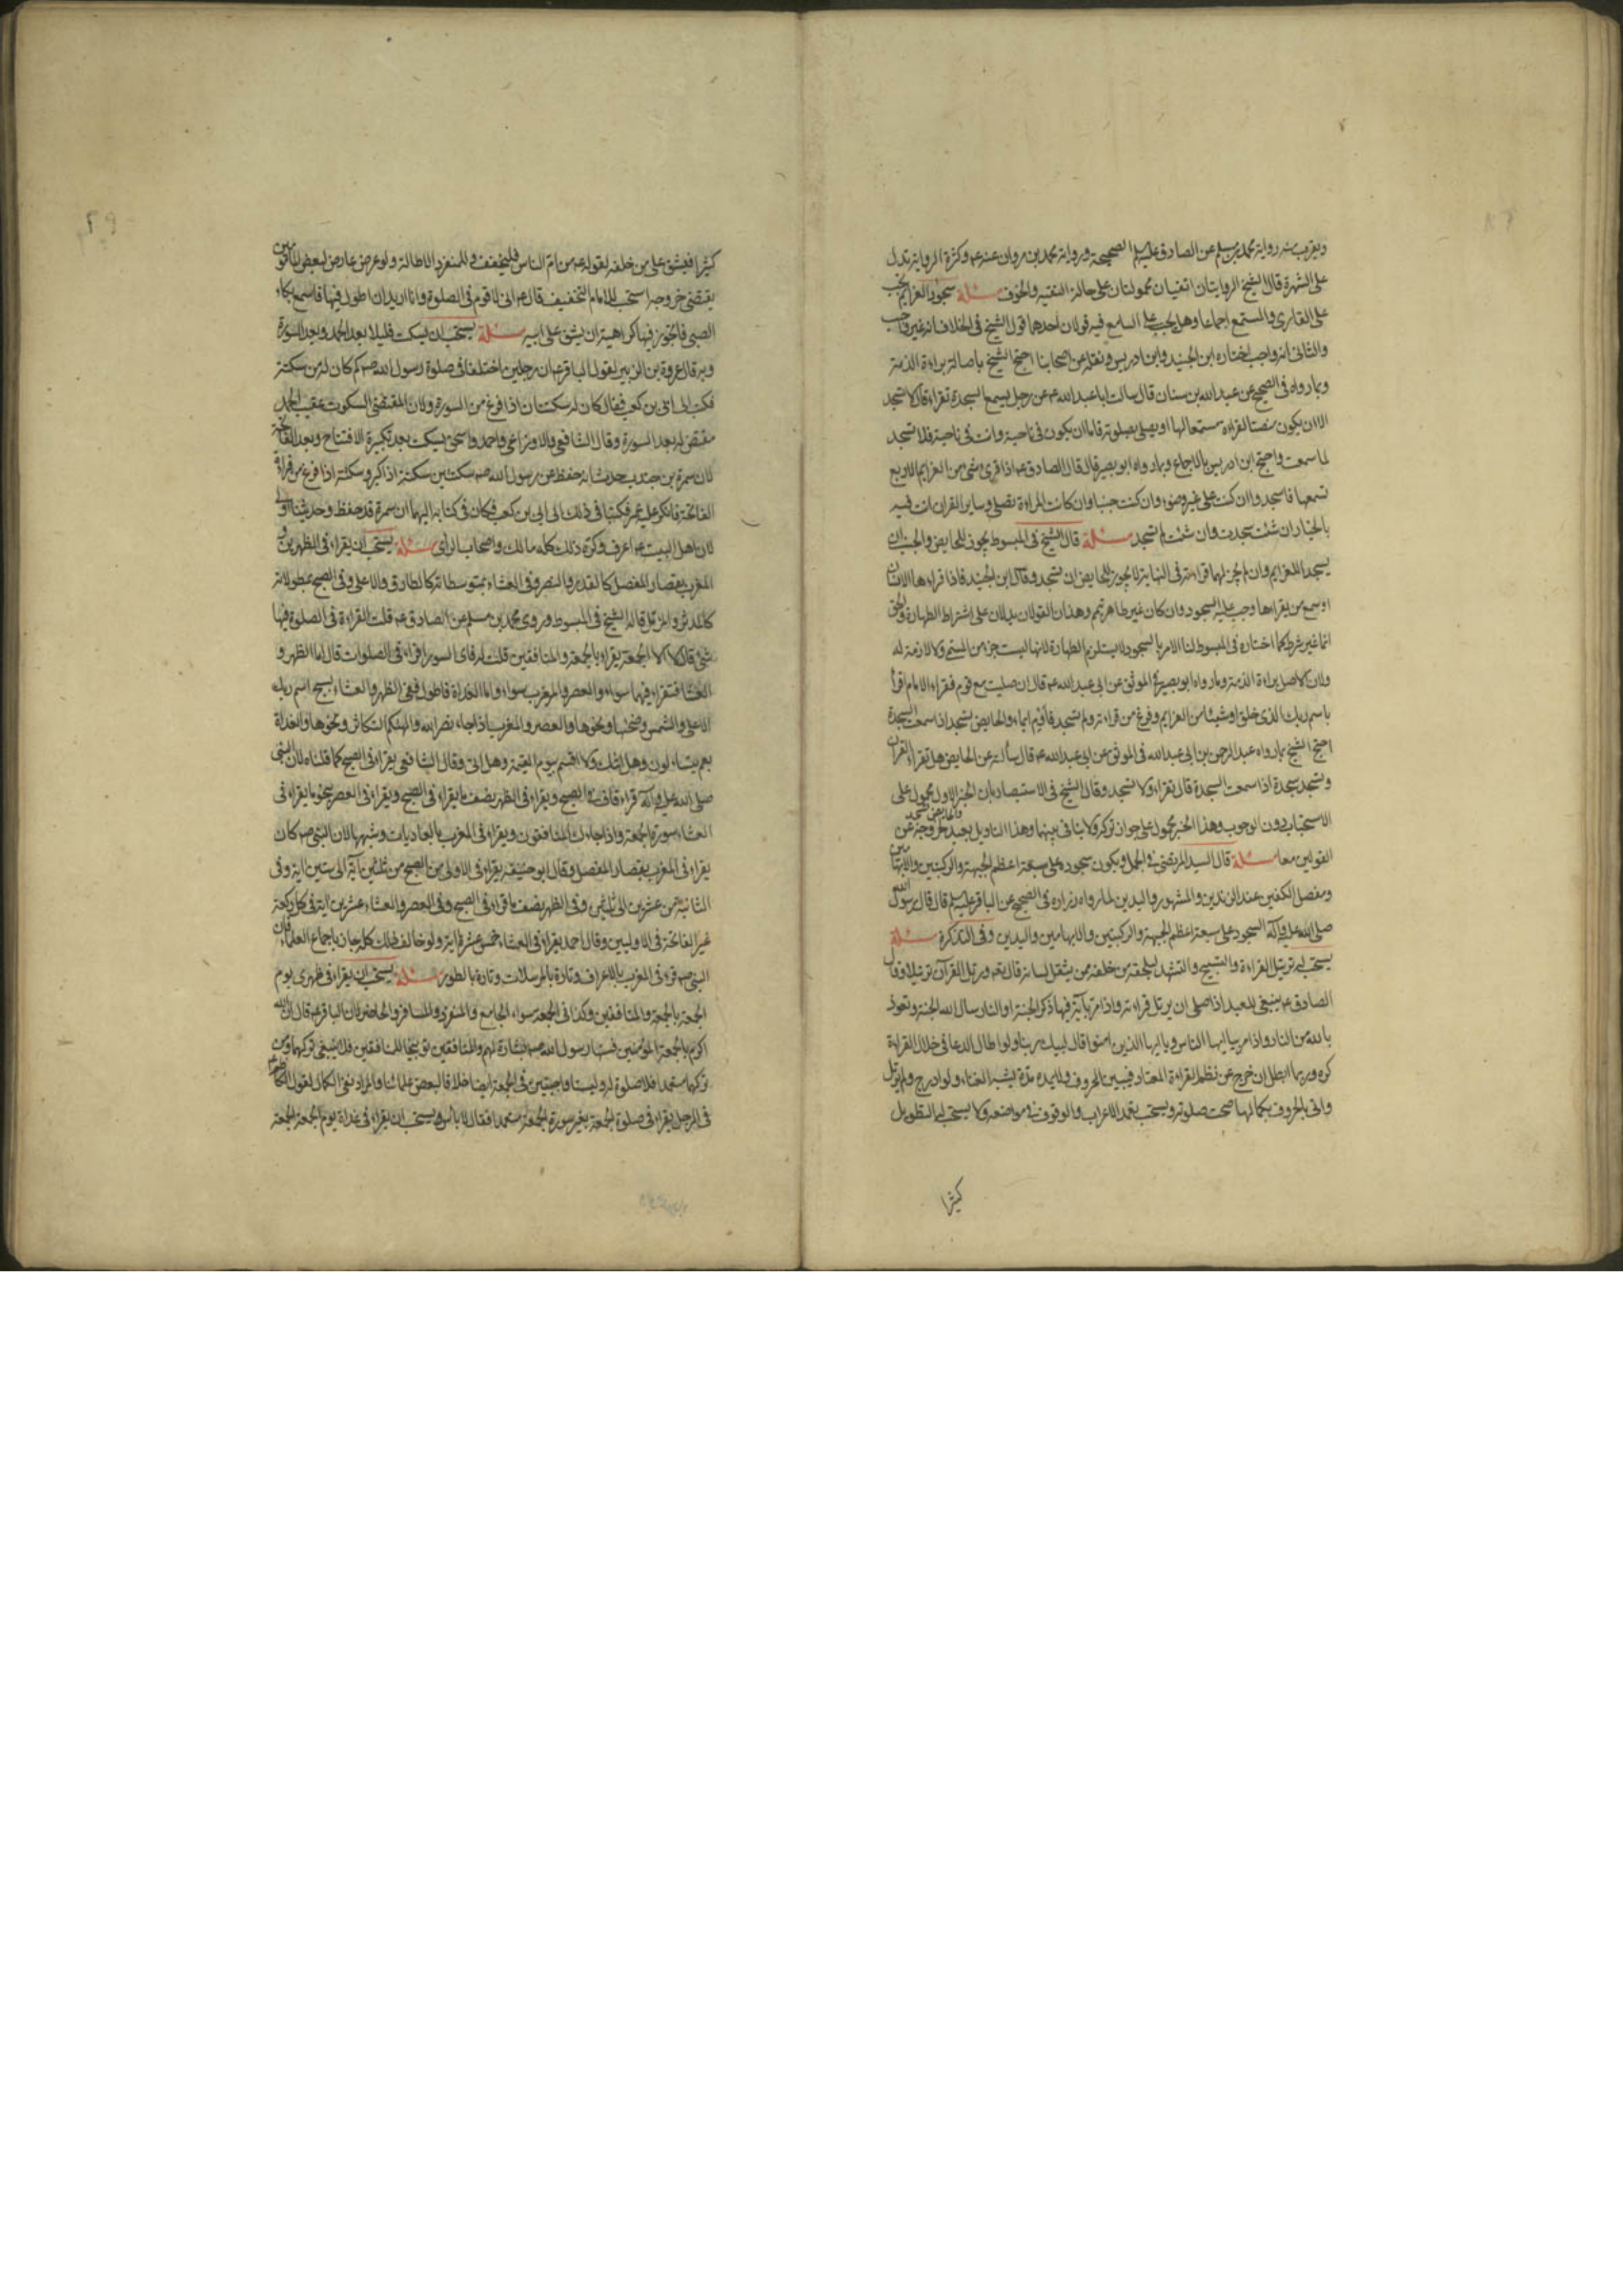 ويقرب منه رواية محمد بن مسلم عن الصادق عليه السلم الصحيحة ورواية محمد بن مروان عنه عم وكثرة الرواية تدل
على الشهرة قال الشيخ الروايتان تحملان على حالة التقية والخوف مسئلة سجود العزايم يجب
على القارى والمستمع اجماعا وهل يجب على السامع فيه قولان احدهما قول الشيخ فى الخلاف انه غير واجب
والثانى انه واجب اختاره ابن الجنيد وابن ادريس ونقله عن اصحابنا احتج الشيخ باصالة براءة الذمة
وبما رواه فى الصحيح عن عبد الله بن سنان قال سالت ابا عبد الله عم عن رجل يسمع السجدة تقراء قال لا تسجد
الا ان يكون منصتا لقراءة مستمعا لها او يصلى بصلوته فاما ان يكون فى ناحية وانت فى ناحية فلا تسجد
لما سمعت واحتج ابن ادريس بالاجماع وبما رواه ابو بصير قال قال الصادق عم اذا قرى شئ من العزايم الاربع
تسمعها فاسجد وان كنت على غير وضوء وان كنت جنبا وان كانت المراءة لا تصلى وساير القران انت فيه
بالخيار ان شئت سجدت وان شئت لم تسجد مسئلة قال الشيخ فى المبسوط يجوز للحايض والجنب ان
يسجدا للعزايم وان لم يجز لهما قراءته وفى النهاية لا يجوز للحايض ان تسجد وقال ابن الجنيد فاذا قراءها الانسان
او سمع من يقراءها وجب عليه السجود وان كان غير طاهر تيمم وهذان القولان يدلان على اشتراط الطهارة والحق
انها غير شرط كما اختاره فى المبسوط لنا الامر بالسجود لا يستلزم الطهارة لانها ليست جزء من المسمى ولا لازمة له
ولان الاصل براءة الذمة وما رواه ابو بصير فى الموثق عن ابى عبد الله عم قال ان صليت مع قوم فقراء الامام اقرأ
باسم ربك الذى خلق او شيئا من العزايم وفرغ من قراءته ولم تسجد فأوم ايماء والحايض تسجد اذا سمعت السجدة
احتج الشيخ بما رواه عبد الرحمن بن ابى عبد الله فى الموثق عن ابى عبد الله عم قال سألته عن الحايض هل تقراء القران
وتسجد سجدة اذا سمعت السجدة قال تقراء ولا تسجد وقال الشيخ فى الاستبصار بان الخبر الاول محمول على
الاستحباب دون الوجوب وهذا الخبر محمول على جواز تركه ولا ينافى بينهما وهذا التاويل بعيد لخروجه عن
القولين معا مسئلة قال السيد المرتضى فى الجمل ويكون سجوده على سبعة اعظم الجبهة والركبتين والابهامين
ومفصل الكفين عند الزندين والمشهور واليدين لما رواه زرارة فى الصحيح عن الباقر عليه السلم قال قال رسول الله
صلى الله عليه وآله السجود على سبعة اعظم الجبهة والركبتين والابهامين واليدين وفى التذكرة مسئلة
يستحب له ترتيل القراءة والتسبيح والتشهد ليلحقه من خلفه ممن يثقل لسانه قال تعم ورتل القرآن ترتيلا وقال
الصادق عم ينبغى للعبد اذا صلى ان يرتل قراءته واذا مر بآية فيها ذكر الجنة او النار سال الله الجنة وتعوذ
بالله من النار واذا مر بيا ايها الناس ويا ايها الذين امنوا قال لبيك ربنا ولو اطال الدعا فى خلال القراءة
كره وربما ابطل ان خرج عن نظم القراءة المعتاد فيبين الحروف ولا يمده مدة يشبه الغناء ولو ادرج ولم يرتل
واتى بالحروف بكمالها صحت صلوته ويستحب تعمد الاعراب والوقوف فى مواضعه ولا يستحب له التطويل
كثيرا
كثيرا فيشق على من خلفه لقوله عم من ام الناس فليخفف وللمنفرد الاطالة ولو عرض عارض لبعض المأمومين
يقتضى خروجه استحب للامام التخفيف قال عم انى لاقوم فى الصلوة وانا اريد ان اطول فيها فاسمع بكاء
الصبى فاتجوز فيها كراهية ان يشق على ابيه مسئلة يستحب ان يسكت قليلا بعد الحمد وبعد السورة
وبه قال عروة بن الزبير لقول الباقر عم ان رجلين اختلفا فى صلوة رسول الله صم كم كان له من سكتة
فكتب الى ابى بن كعب فقال كان له سكتتان اذا فرغ من السورة ولان المقتضى السكوت عقيب الحمد
مقتض له بعد السورة وقال الشافعى والاوزاعى واحمد واسحق يسكت بعد تكبيرة الافتتاح وبعد الفاتحة
لان سمرة بن جندب حدث انه حفظ عن رسول الله صم سكتتين سكتة اذا كبر وسكتة اذا فرغ من قراءة
الفاتحة فانكر عليه عمر فكتبا فى ذلك الى ابى بن كعب فكان فى كتابه اليهما ان سمرة قد حفظ وحديثنا اولى
لان اهل البيت عم اعرف وكره ذلك كله مالك واصحاب الراى مسئلة يستحب ان يقراء فى الظهرين و
المغرب بقصار المفصل كالقدر والنصر وفى العشاء بمتوسطاته كالطارق والاعلى وفى الصبح بمطولاته
كالمدثر والمزمل قاله الشيخ فى المبسوط وروى محمد بن مسلم عن الصادق عم قلت القراءة فى الصلوة فيها
شئ قال لا الا الجمعة يقراء بالجمعة والمنافقين قلت له فاى السور اقراء فى الصلوات قال اما الظهر و
العشاء فتقراء فيهما سواء والعصر والمغرب سواء واما الغداة فاطول ففى الظهر والعشاء بسبح اسم ربك
الاعلى والشمس وضحيها ونحوها والعصر والمغرب باذا جاء نصر الله والهيكم التكاثر ونحوها والغداة
بعم يتساءلون وهل اتيك ولا اقسم بيوم القيمة وهل اتى وقال الشافعى يقراء فى الصبح كما قلناه لان النبى
صلى الله عليه وآله قراء ق فى الصبح ويقراء فى الظهر بضعف ما يقراء فى الصبح ويقراء فى العصر نحو ما يقراء فى
العشاء سورة الجمعة واذا جاءك المنافقون ويقراء فى المغرب بالعاديات وشبهها لان النبى صم كان
يقراء فى المغرب بقصار المفصل وقال ابو حنيفة يقراء فى الاولى من الصبح من ثلثين آية الى ستين اية وفى
الثانية من عشرين الى ثلثين وفى الظهر بضعف ما قراء فى الصبح وفى العصر والعشاء عشرين اية فى كل ركعة
غير الفاتحة فى الاوليين وقال احمد يقراء فى العشاء خمس عشرة اية ولو خالف ذلك كله جاز باجماع العلماء فان
النبى صم قرء فى المغرب بالاعراف وتارة بالمرسلات وتارة بالطور مسئلة يستحب ان يقراء فى ظهرى يوم
الجمعة بالجمعة والمنافقين وكذا فى الجمعة سواء الجامع والمنفرد والمسافر والحاضر لان الباقر عم قال ان الله
اكرم بالجمعة المؤمنين فسنها رسول الله صم بشارة لهم والمنافقين توبيخا للمنافقين فلا ينبغى تركهما ومن
تركهما متعمدا فلا صلوة له وليستا واجبتين فى الجمعة ايضا خلافا لبعض علمائنا والمراد نفى الكمال لقول الكاظم عم
فى الرجل يقراء فى صلوة الجمعة بغير سورة الجمعة متعمدا فقال لا باس ويستحب ان يقراء فى غداة يوم الجمعة الجمعة